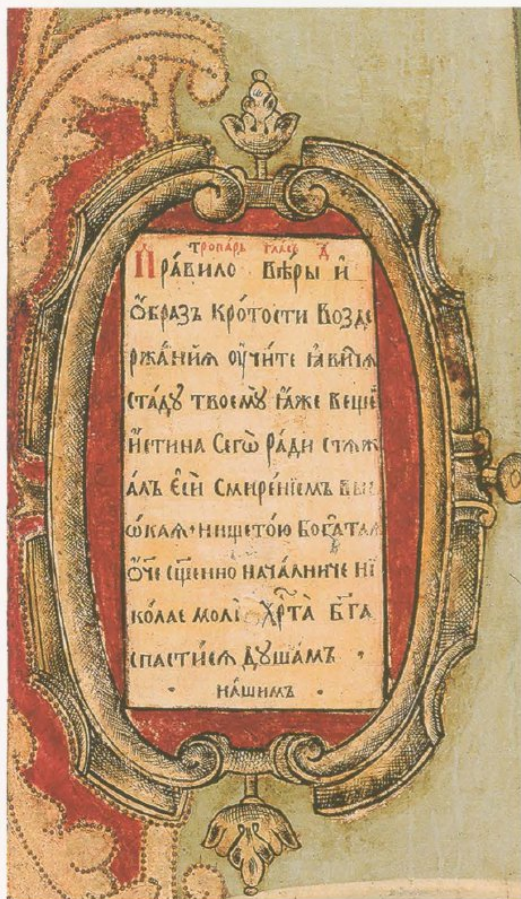 тропарь гласъ д҃
Пра́вило вѣ́ры и҆
ѻ҆́браꙁъ кро́тости воꙁде
ржа́нїѧ ᲂу҆чи́те ꙗ҆ви́ тѧ
ста́дꙋ твоемꙋ̀ ꙗ҆́же веще́
и҆́стина Сегѡ̀ ра́ди стѧж
а́лъ є҆сѝ Смире́нїемъ выс
ѡ́каѧ нището́ю Бога́таѧ
ѻ҆́че сщ҃енно нача́лниче ні
ко́лае молѝ Хрⷭ҇та̀ Бг҃а
спасти́сѧ дꙋша́мъ
на́шимъ